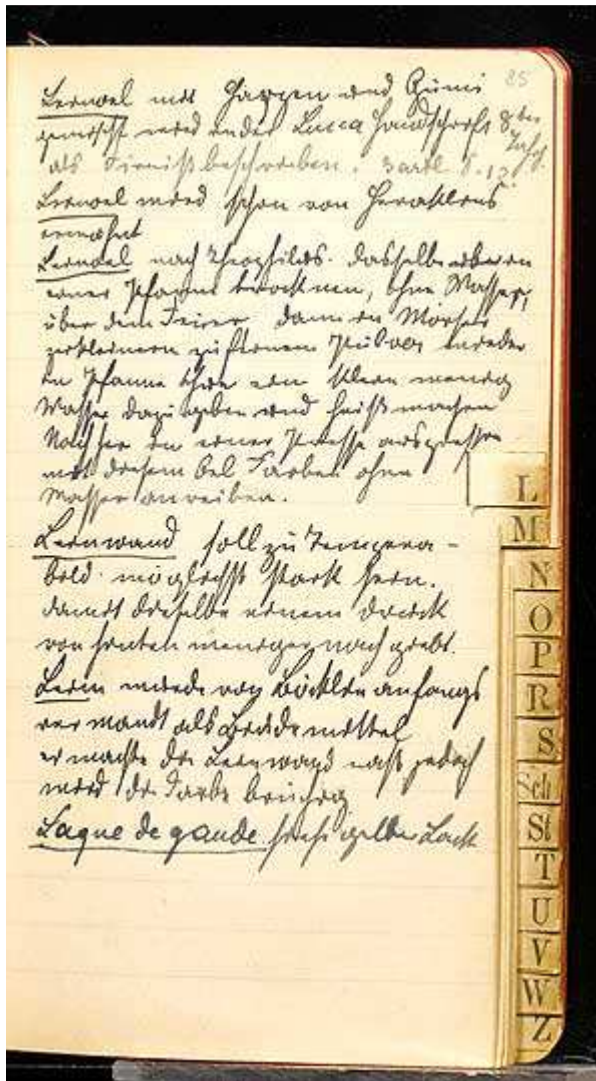 85
Leinoel mit Harzen und Gumi
gemischt wird in der Lucca Handschrift 8ter
Jahrh.
als Firniß beschrieben. S. 12
Leinoel wird schon von Heraklius
erwähnt
Leinoel nach Theophilus. dasselbe in
einer Pfanne trocknen, ohne Wasser,
über dem Feuer dann im Mörser
zerkleinern zu feinem Pulver wieder
in Pfanne thun ein klein wenig
Wasser dazu geben und heiß machen
Nachher in einer Presse auspressen
mit diesem Oel Farben ohne
Wasser anreiben.
Leinwand soll zu Tempera-
bild möglichst stark sein.
damit dieselbe einem Druck
von hinten weniger nach giebt.
Leim wurde von Böcklin anfangs
verwandt als Bindemittel
er machte die Leinwand naß jedoch
wird die Farbe brüchig
Laque de gaude. gelber Lack
L
M
N
O
P
R
S
Sch
St
T
U
V
W
Z